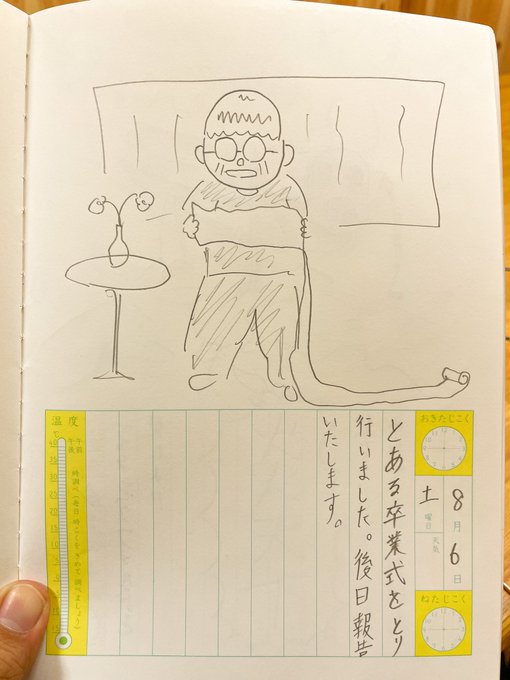 おきたじこく
8月6日
土曜日
天気
ねたじこく
とある卒業式をとり
行いました。後日報告
いたします。
温度
℃
午前
午後
時調べ(毎日時こくをきめて調べましょう)
40
35
30
25
20
15
10
5
0